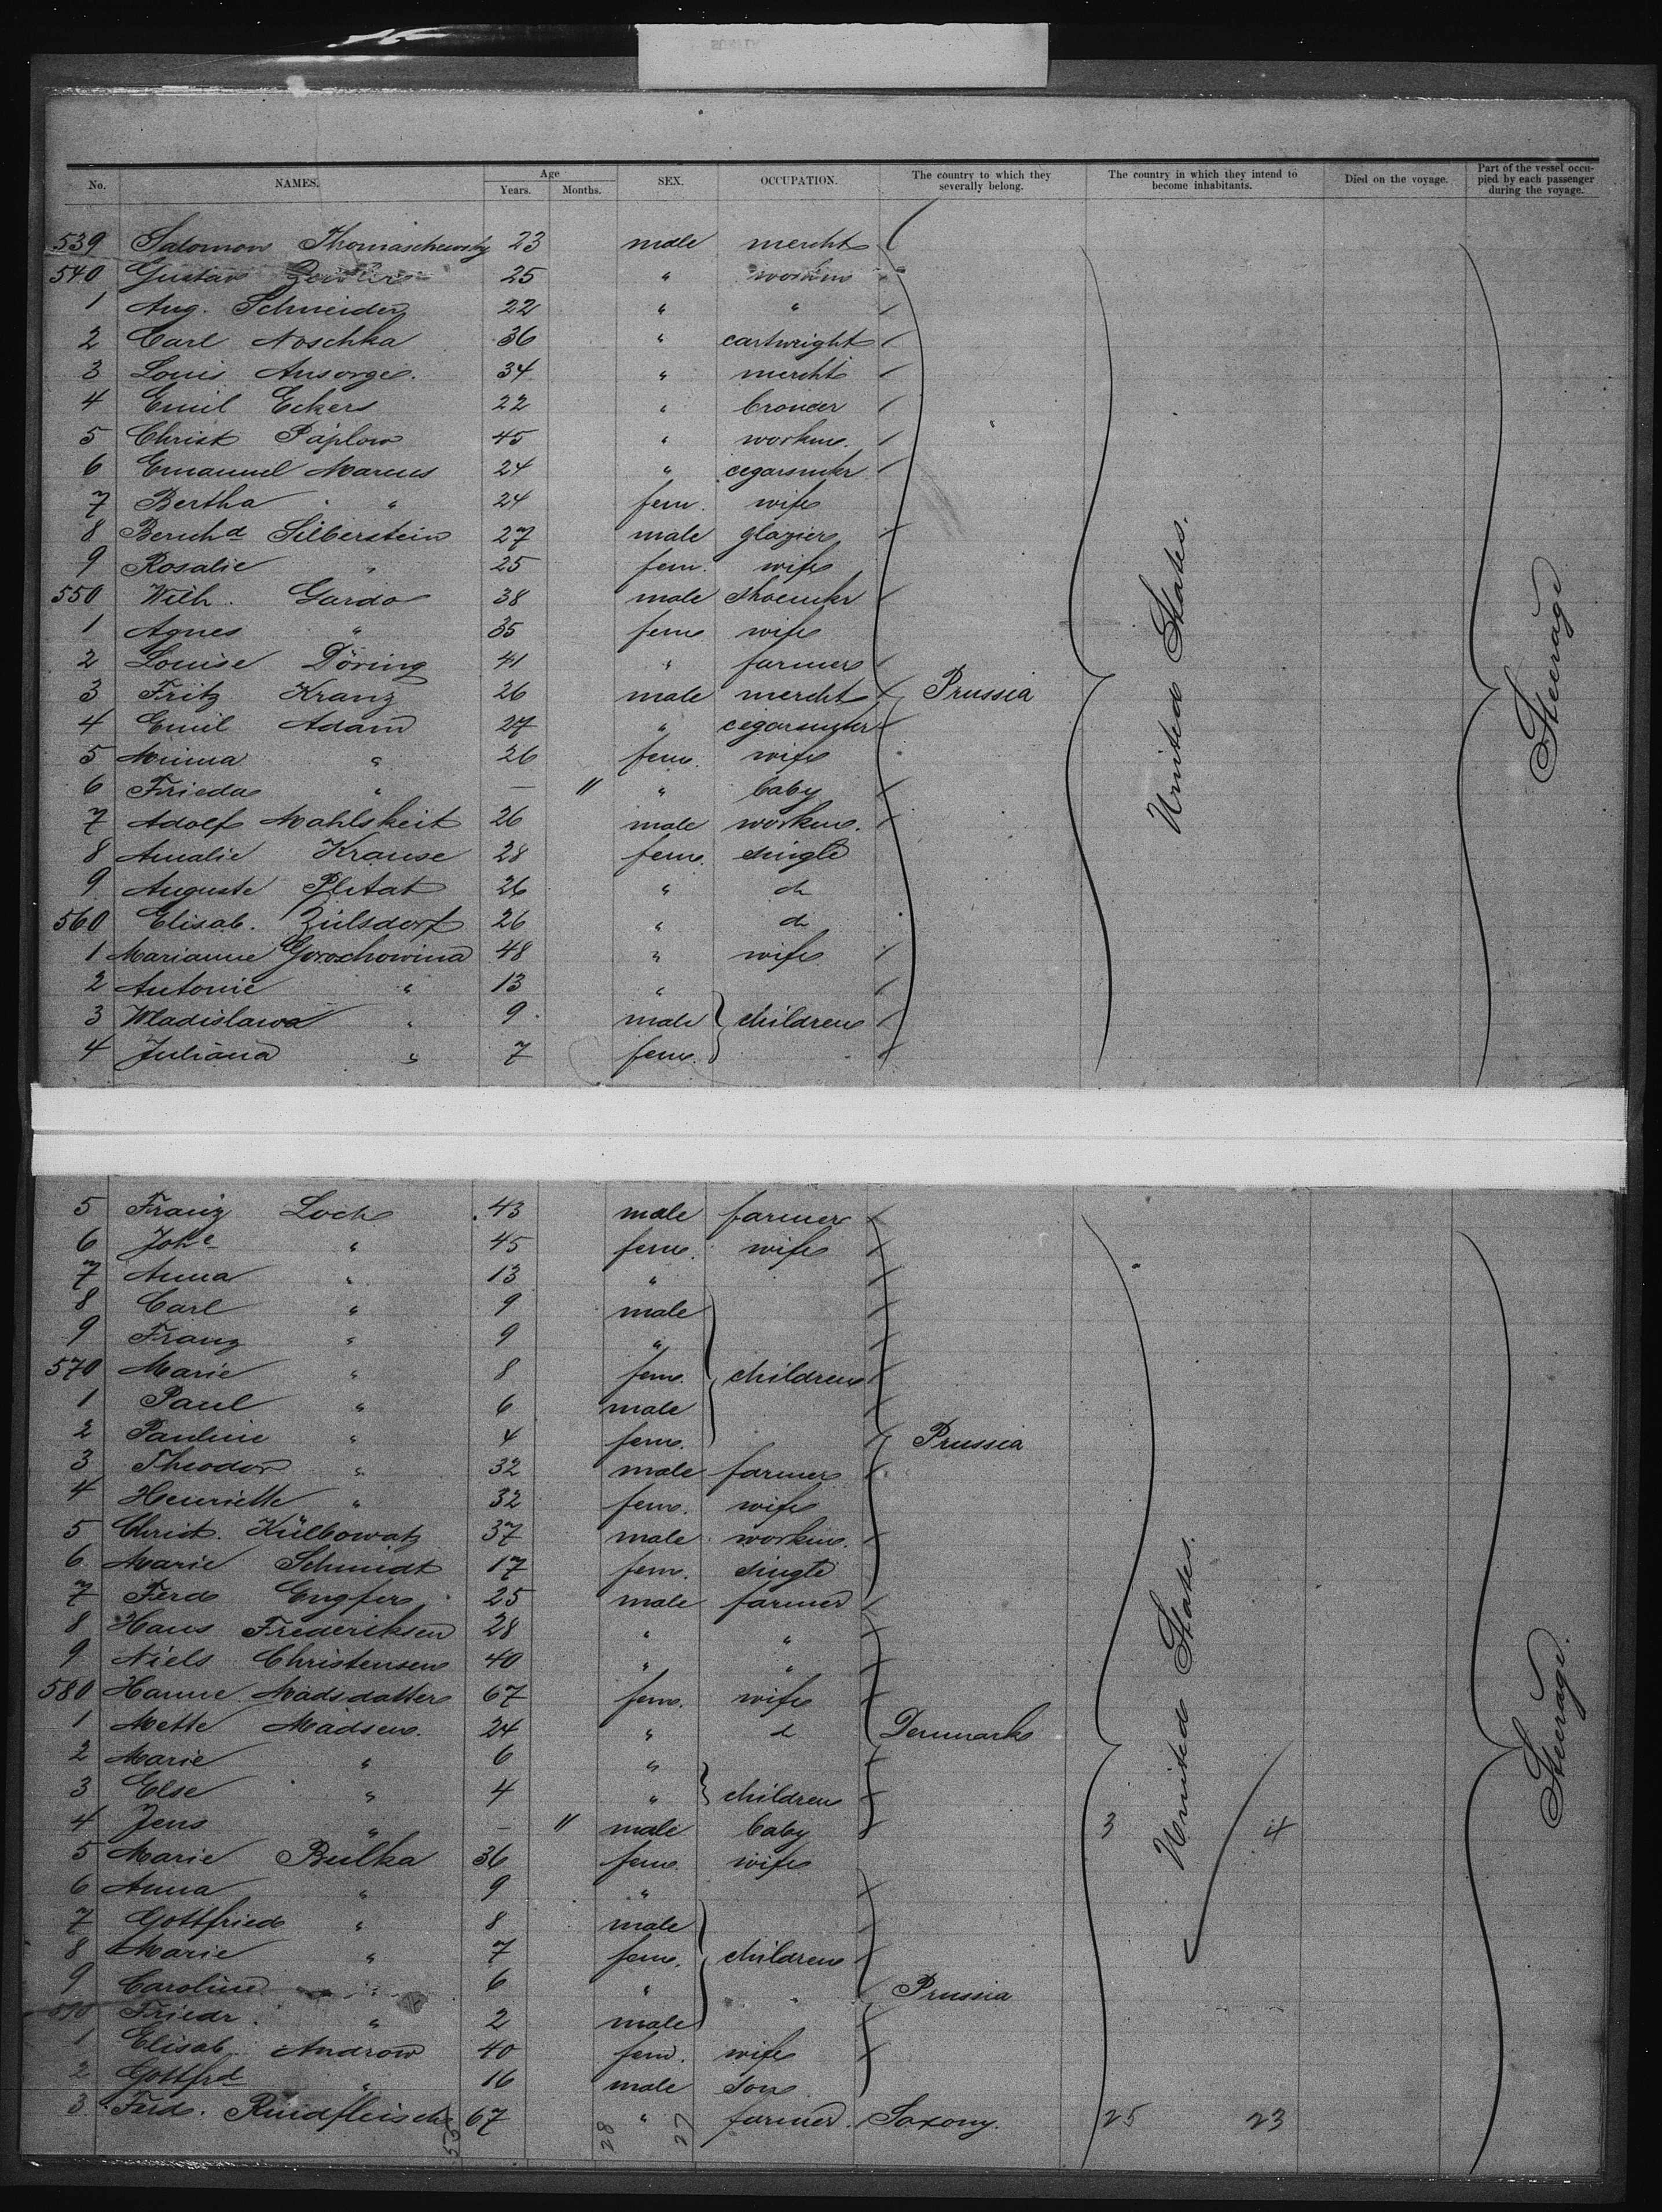 No. NAMES. Age Years. Months. SEX. OCCUPATION. The country to which they severally belong. The country in which they intend to become inhabitants. Died on the voyage. Part of the vessel occupied by each passenger during the voyage.
539 Salomon Thomaschewsky 23 male mercht
540 Gustav 25 " workm
1 Aug. Schneider 22 " "
2 Carl Noschka 36 " cartwright
3 Louis Ansorge. 34 " mercht
4 Emil Eckers 22 "
5 Christ Päplow 45 " workm.
6 Emanuel Marcus 24 " cegarmkr
7 Bertha " 24 fem. wife
8 Bernhd Silberstein 27 male glazier
9 Rosalie " 25 fem. wife
550 Wilh. Gardo 38 male shoemkr
1 Agnes " 35 fem wife
2 Louise Döring 41 " farmer
3 Fritz Kranz 26 male mercht Prussia United States. Steerage
4 Emil Adam 27 " cegarmker
5 Minna " 26 fem. wife
6 Frieda " — 11 " baby
7 Adolf Mahlskeit 26 male workm.
8 Amalie Krause 28 fem. single
9 Auguste Plitat 26 " do
560 Elisab. Zülsdorf 26 " do
1 Marianne Gorochowina 48 " wife
2 Antonie " 13 "
3 Wladislawa " 9 male children
4 Juliana " 7 fem.
5 Franz Loch 43 male farmer
6 Johe " 45 fem. wife
7 Anna " 13 "
8 Carl " 9 male
9 Franz " 9 "
570 Marie " 8 fem. children
1 Paul " 6 male
2 Pauline " 4 fem. Prussia
3 Theodor " 32 male farmer
4 Henriette " 32 fem. wife
5 Christ. Külbowatz 37 male workm.
6 Marie Schmidt 17 fem. single
7 Ferd Engfer 25 male farmer
8 Hans Frederiksen 28 " "
9 Niels Christensen 40 " "
580 Hanne Madsdatter 67 fem. wife
1 Mette Madsen. 24 " d Denmark United States. Steerage.
2 Marie " 6 "
3 Else " 4 " children
4 Jens " — 11 male baby 3 4
5 Marie Bulka 36 fem. wife
6 Anna " 9 "
7 Gottfried " 8 male
8 Marie " 7 fem. children
9 Caroline " 6 " Prussia
590 Friedr. " 2 male
1 Elisab. Androw 40 fem. wife
2 Gottfrd " 16 male son
3 Ferd. Rindfleisch 67 " farmer. Saxony. 25 23
55 28 27